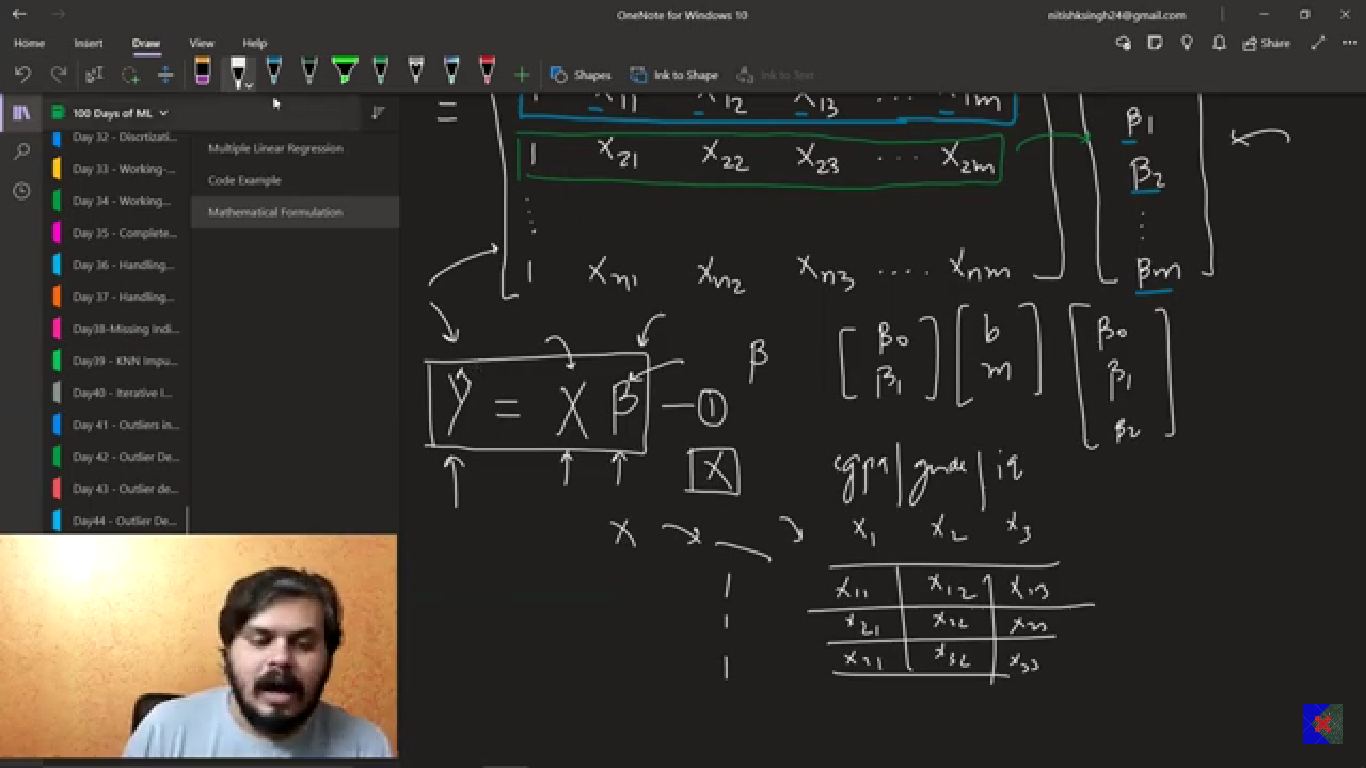 OneNote for Windows 10
nitishksingh24@gmail.com
Home Insert Draw View Help
Share
Shapes Ink to Shape Ink to Text
100 Days of ML
Day 32 - Discrtizati...
Day 33 - Working-...
Day 34 - Working...
Day 35 - Complete...
Day 36 - Handling...
Day 37 - Handling...
Day38-Missing Indi...
Day39 - KNN Impu...
Day40 - Iterative I...
Day 41 - Outliers in...
Day 42 - Outlier De...
Day 43 - Outlier de...
Day44 - Outlier De...
Multiple Linear Regression
Code Example
Mathematical Formulation
= 1 X11 X12 X13 ... X1m β1
1 X21 X22 X23 ... X2m β2
1 Xn1 Xn2 Xn3 .... Xnm βm
Ŷ = X β — ①
β
β0 b β0
β1 m β1
β2
X
cgpa | grade | iq
X → x1 x2 x3
1 x11 x12 x13
1 x21 x22 x23
1 x31 x32 x33